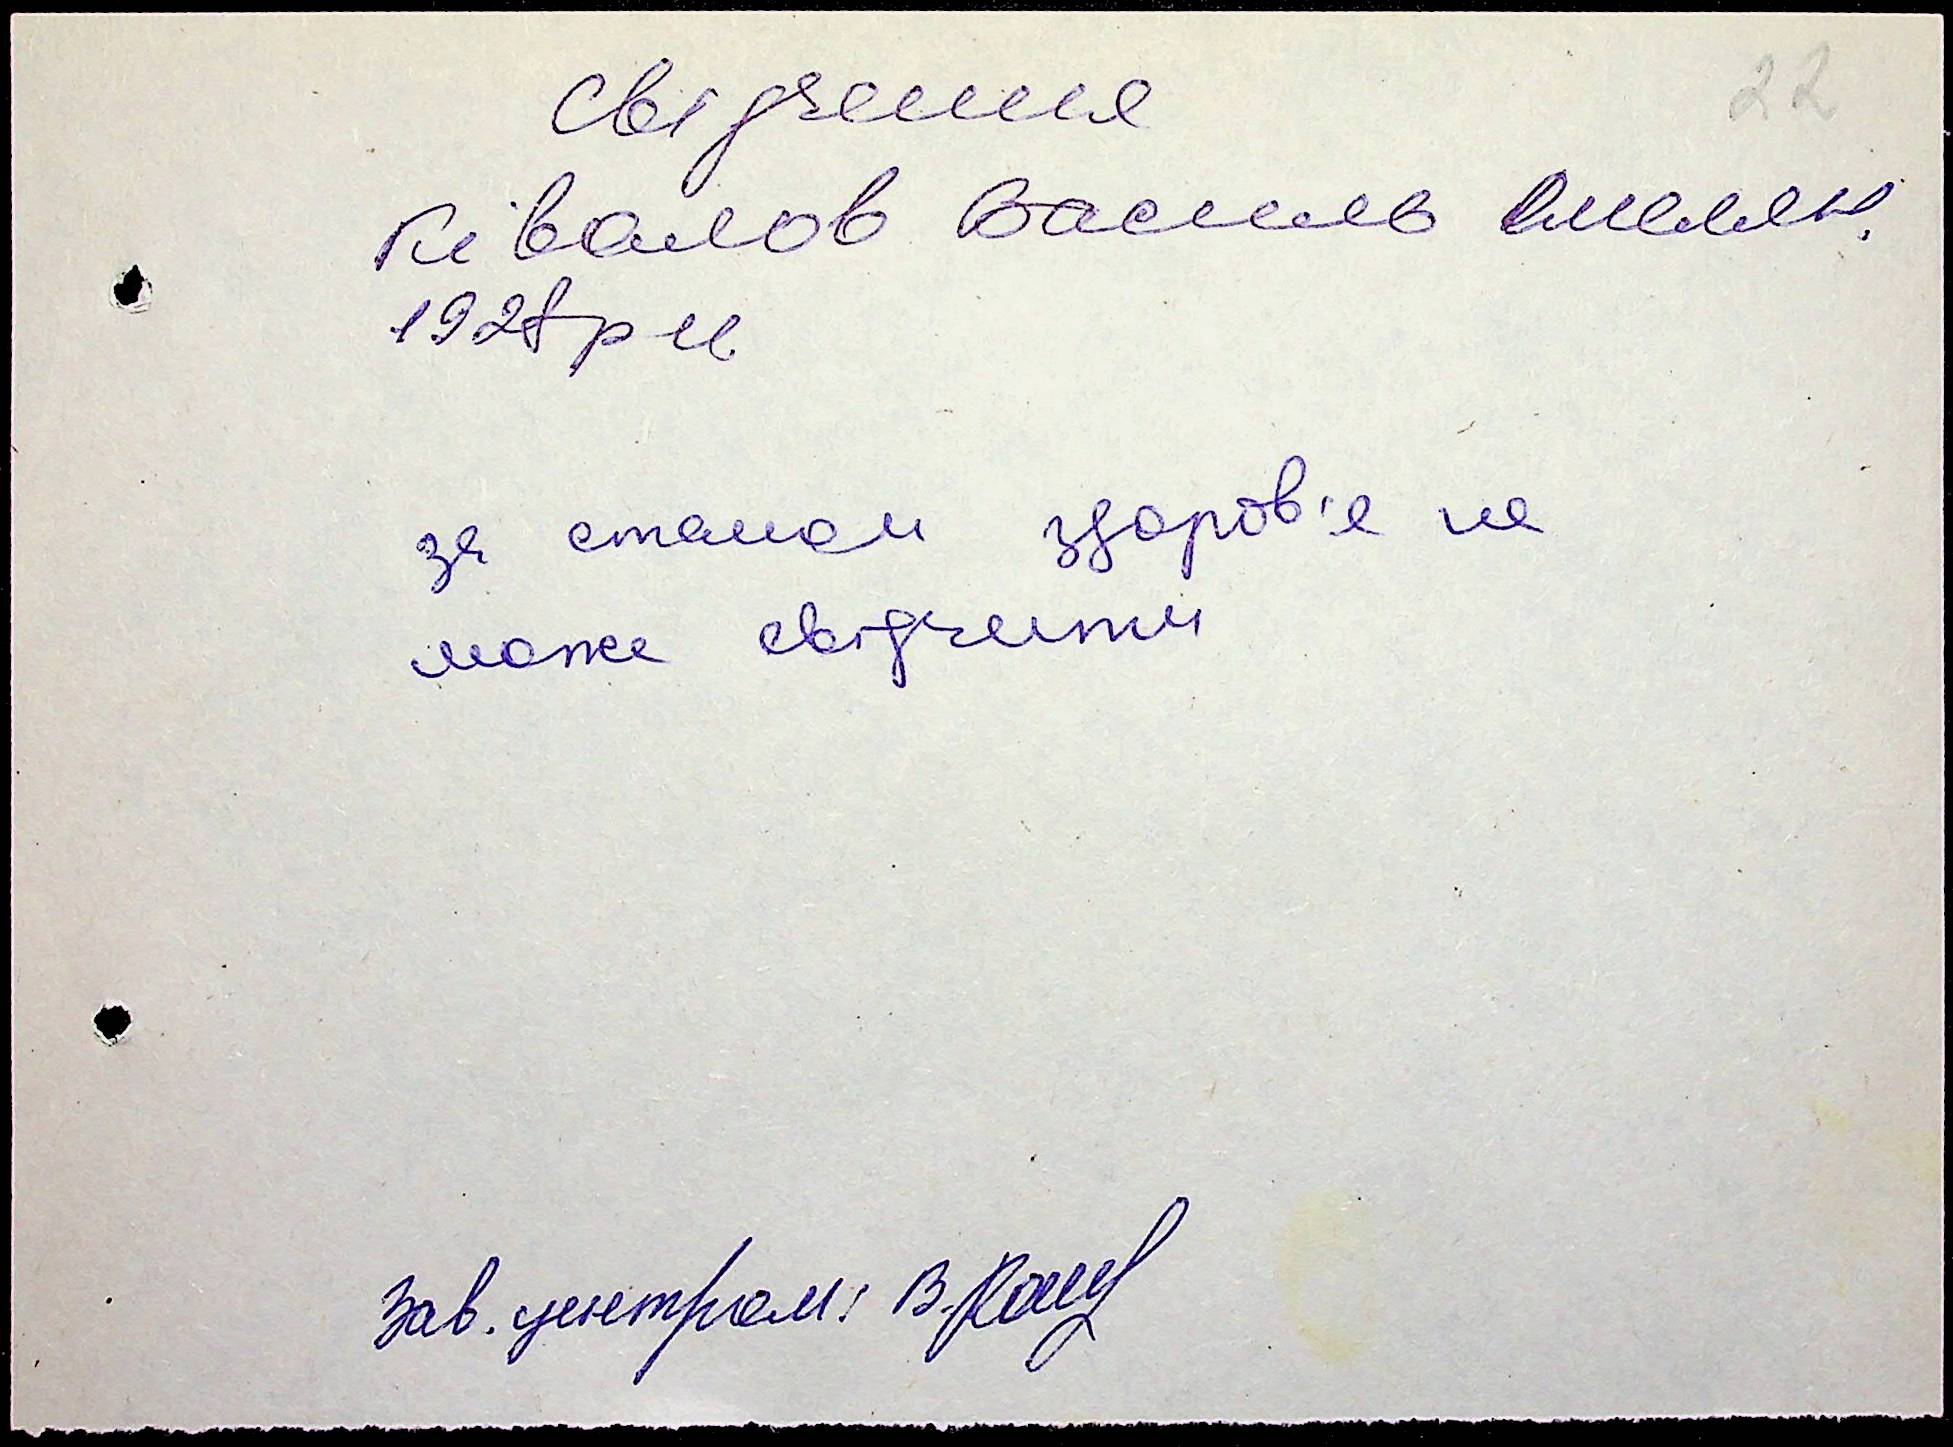 22
Свідчення
Ківалов Василь Омелян.
1928 р н.
за станом здоров'я не
може свідчити
Зав. центром: В. Кац